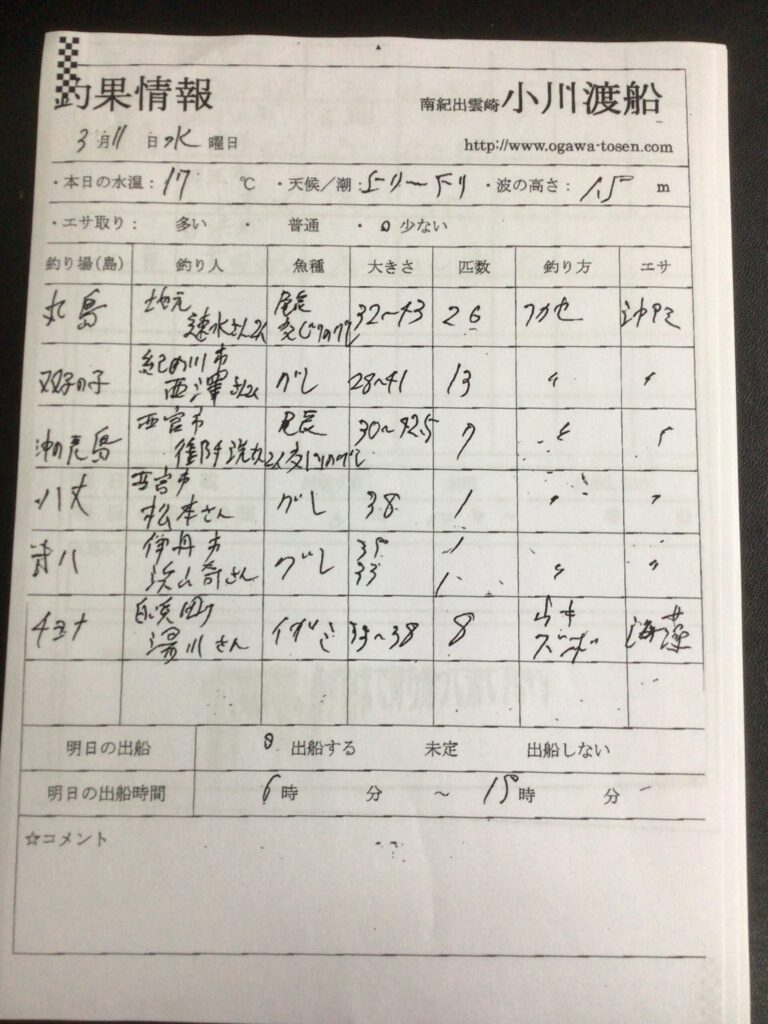 釣果情報 南紀出雲崎小川渡船
3月11日水曜日 http://www.ogawa-tosen.com
・本日の水温：17℃ ・天候／潮：上り～下り ・波の高さ：1.5m
・エサ取り： 多い ・ 普通 ・ 0 少ない
釣り場(島) 釣り人 魚種 大きさ 匹数 釣り方 エサ
丸島 地元 速水さん2人 尾長交じりのグレ 32～43 26 フカセ 沖アミ
双子の子 紀の川市 西澤さん2人 グレ 28～41 13 〃 〃
沖の島 西宮市 2人 尾長交じりのグレ 30～42.5 7 〃 〃
八丈 西宮市 松本さん グレ 38 1 〃 〃
伊丹市 さん グレ 35 1
33 1 〃 〃
チョナ 白浜町 湯川さん イガミ 35～38 8 海藻
明日の出船 0 出船する 未定 出船しない
明日の出船時間 6時 分 ～ 15時 分
☆コメント